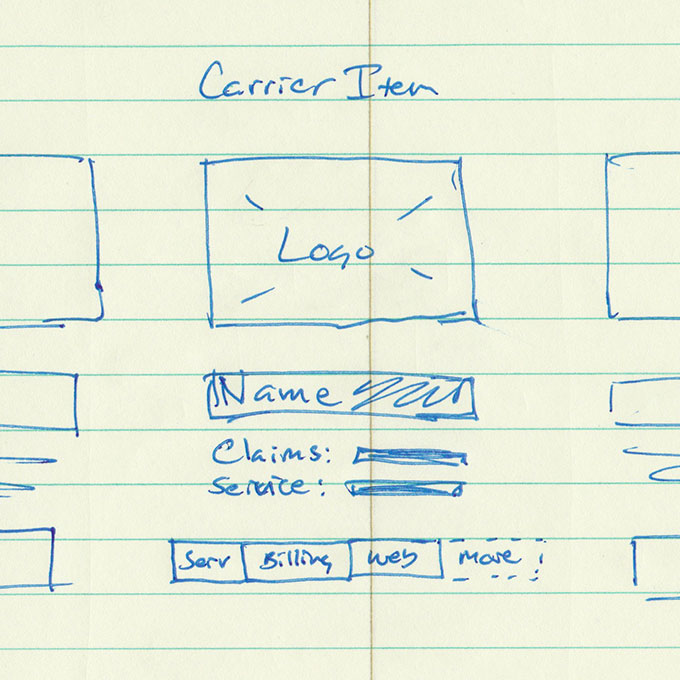 Carrier Item
Logo
Name
Claims:
Service:
Serv Billing Web More